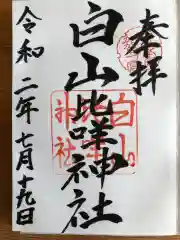 奉拝
白山比咩神社
令和二年七月十九日